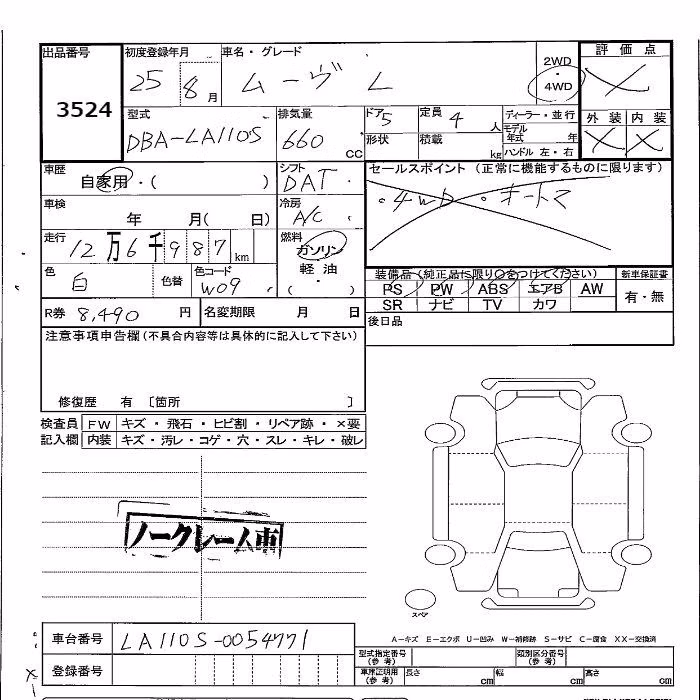 出品番号 3524
初度登録年月 25 8月
車名・グレード ムーヴ L
2WD ・ 4WD
評価点
外装 内装
型式 DBA-LA110S
排気量 660 CC
ドア 5
形状
定員 4 人
積載 kg
ディーラー・並行
モデル年式 年
ハンドル 左・右
車歴 自家用・( )
シフト DAT・
セールスポイント (正常に機能するものに限ります)
・4WD ・オートマ
車検 年 月( 日)
冷房 A/C
走行 12万6千987km
燃料 ガソリン
軽油・( )
色 白 色替
色コード W09
装備品 (純正品に限り○をつけてください)
新車保証書 有・無
PS PW ABS エアB AW
SR ナビ TV カワ
R券 8,490 円
名変期限 月 日
後日品
注意事項申告欄(不具合内容等は具体的に記入して下さい)
修復歴 有 〔箇所 〕
検査員記入欄
FW キズ・飛石・ヒビ割・リペア跡・×要
内装 キズ・汚レ・コゲ・穴・スレ・キレ・破レ
ノークレーム車
スペア
A-キズ E-エクボ U-凹み W-補修跡 S-サビ C-腐食 XX-交換済
車台番号 LA110S-0054771
登録番号
型式指定番号(参考)
類別区分番号(参考)
車庫証明用(参考) 長さ cm 幅 cm 高さ cm